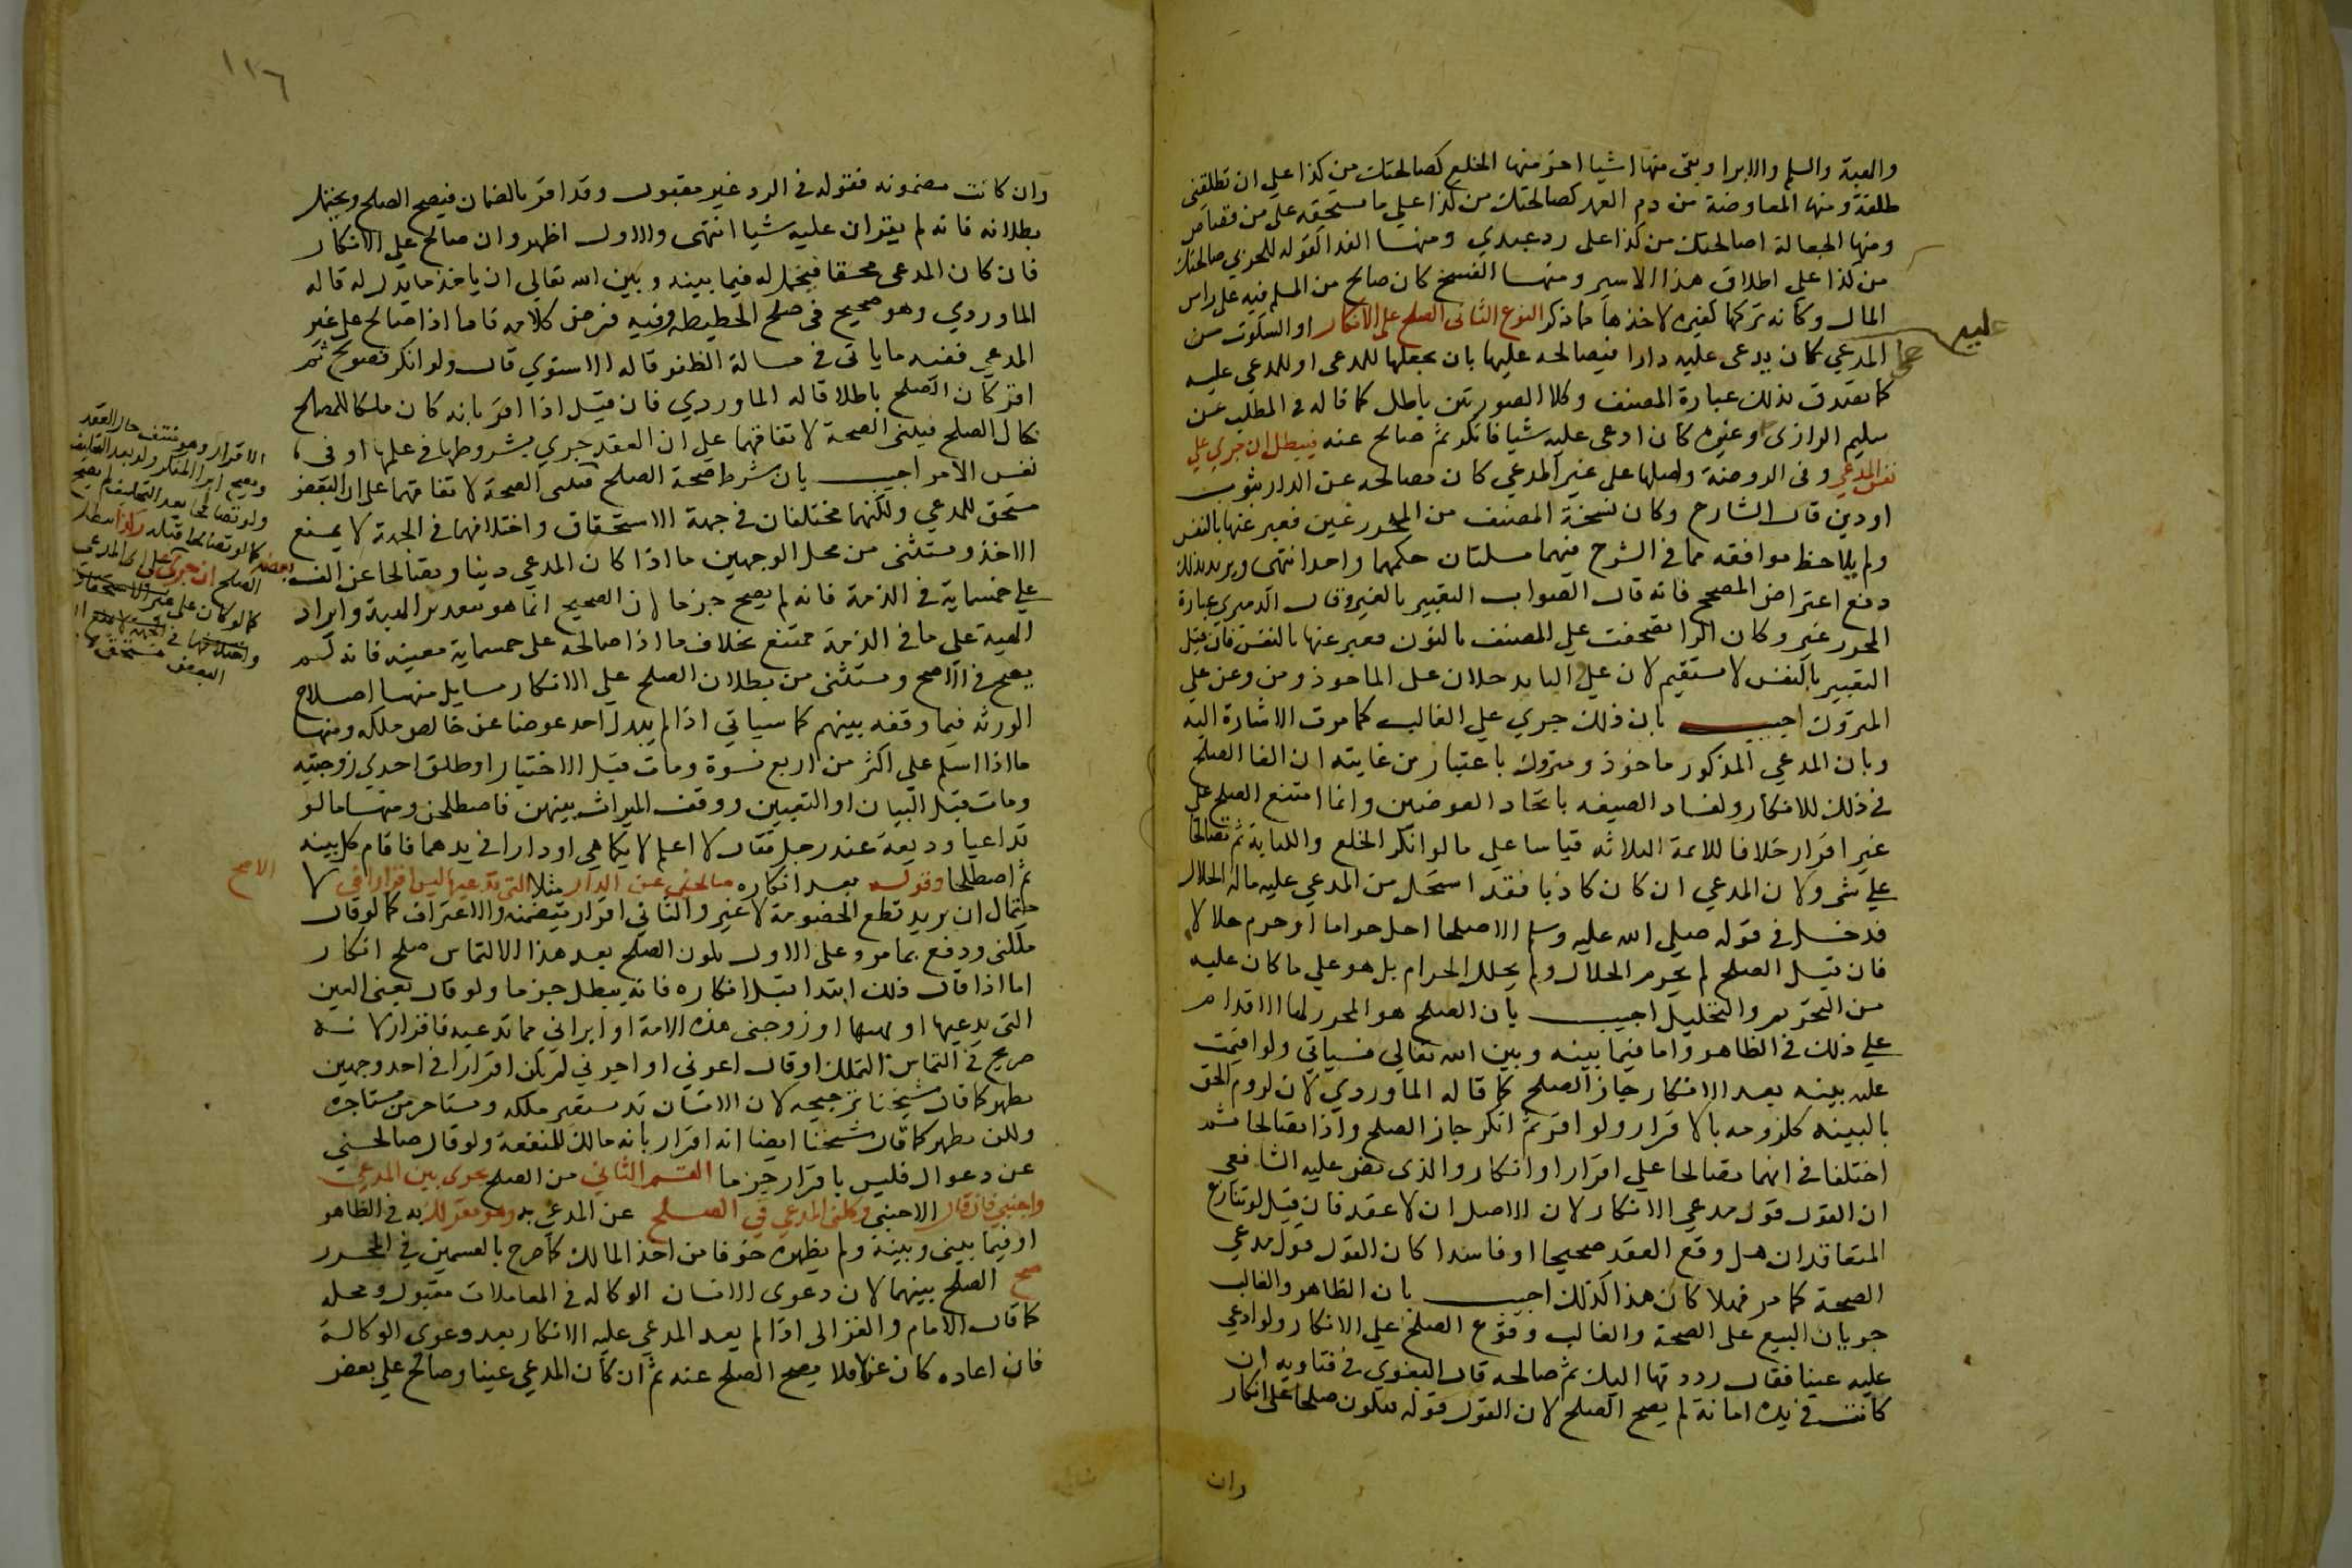 والهبة والسلم والابرا وبقى منها اشيا اخر منها الخلع كصالحتك من كذا على ان تطلقنى
طلقة ومنها المعاوضة من دم العمد كصالحتك من كذا على ما تستحقه على من قصاص
ومنها الجعالة اصالحتك من كذا على رد عبدي ومنها الفدا كقوله للحربي صالحتك
من كذا على اطلاق هذا الاسير ومنها الفسخ كان صالح من المسلم فيه على راس
المال وكانه تركها كغيره لاخذها مما ذكر النوع الثانى الصلح على الانكار او السكوت من
عليه
المدعي كان يدعى عليه دارا فيصالحه عليها بان يجعلها للمدعى او للمدعي عليه
كما تصدق بذلك عبارة المصنف وكلا الصورتين باطل كما قاله في المطلب عن
سليم الرازى وغيره كان ادعى عليه شيا فانكر ثم صالح عنه فيبطل ان جري على
نفس المدعي وفى الروضة واصلها على غير المدعي كان مصالحه عن الدار بثوب
او دين قال الشارح وكان نسخة المصنف من المحرر عين فعبر عنها بالنفس
ولم يلاحظ موافقه مما في الشرح فيهما مسلتان حكمهما واحد انتهى ويريد بذلك
دفع اعتراض المصحح فانه قال الصواب التعبير بالغير وقال الدميرى عبارة
المحرر غير وكان الرا تصحفت على المصنف بالنون فعبر عنها بالنفس فان قيل
التعبير بالنفس لا يستقيم لان على والبا يدخلان على الماخوذ ومن وعن على
المتروك اجيب بان ذلك جري على الغالب كما مرت الاشارة اليه
وبان المدعي المذكور ماخوذ ومتروك باعتبارين غايته ان الغا الصلح
في ذلك للانكار ولفساد الصيغه باتحاد العوضين وانما امتنع الصلح على
غير اقرار خلافا للائمة الثلاثه قياسا على ما لو انكر الخلع والكتابة ثم تصالحا
على شى ولان المدعي ان كان كاذبا فقد استحل من المدعي عليه ماله الحلال
فدخل في قوله صلى الله عليه وسلم الا صلحا احل حراما او حرم حلالا
فان قيل الصلح لم يحرم الحلال ولم يحلل الحرام بل هو على ما كان عليه
من التحريم والتحليل اجيب بان الصلح هو المجوز لهما الاقدام
على ذلك في الظاهر واما فيما بينه وبين الله تعالى فسياتي ولو اقيمت
عليه بينه بعد الانكار جاز الصلح كما قاله الماوردي لان لزوم الحق
بالبينه كلزومه بالاقرار ولو اقر ثم انكر جاز الصلح واذا تصالحا ثم
اختلفا في انهما تصالحا على اقرار او انكار والذى نص عليه الشافعي
ان القول قول مدعي الانكار لان الاصل ان لا عقد فان قيل لو تنازع
المتعاقدان هل وقع العقد صحيحا او فاسدا كان القول قول مدعي
الصحة كما مر فهلا كان هذا كذلك اجيب بان الظاهر والغالب
جريان البيع على الصحة والغالب وقوع الصلح على الانكار ولو ادعي
عليه عينا فقال رددتها اليك ثم صالحه قال البغوي في فتاويه ان
كانت في يده امانة لم يصح الصلح لان القول قوله فيكون صلحا على انكار
وان
١١٦
وان كانت مضمونه فقوله في الرد غير مقبول وقد اقر بالضمان فيصح الصلح ويحتمل
بطلانه فانه لم يقر ان عليه شيا انتهى والاول اظهر وان صالح على الانكار
فان كان المدعى محقا فيحل له فيما بينه وبين الله تعالى ان ياخذ ما بذل له قاله
الماوردي وهو صحيح في صلح الحطيطه وفيه فرض كلامه فاما اذا صالح على غير
المدعي ففيه ما ياتى في مسالة الظفر قاله الاسنوي قال ولو انكر فصولح ثم
اقر كان الصلح باطلا قاله الماوردي فان قيل اذا اقر بانه كان ملكا للمصالح
حال الصلح فينبغى الصحة لاتفاقهما على ان العقد جري بشروطها في علمها او في
نفس الامر اجيب بان شرط صحة الصلح الاقرار وهو منتف حال العقد
ويصح ابرا المنكر ولو بعد التحليف
ولو تصالحا بعد التحليف لم يصح
كما لو تصالحا قبله وكذا يبطل
الصلح ان جرى على بعضه
كما لو كان على غير المدعى
مستحق للمدعي ولكنهما مختلفان في جهة الاستحقاق واختلافهما في الجهة لا يمنع
الاخذ ومستثنى من محل الوجهين ما اذا كان المدعي دينا وتصالحا عن الف
على خمسماية في الذمة فانه لم يصح جزما لان الصحيح انما هو بتقدير الهبة وايراد
الهبة على ما في الذمة ممتنع بخلاف ما اذا صالحه على خمسماية معينه فانه لم
يصح في الاصح ومستثنى من بطلان الصلح على الانكار مسايل منها اصلاح
الورثه فيما وقف بينهم كما سياتي اذا لم يبذل احد عوضا عن خالص ملكه ومنها
ما اذا اسلم على اكثر من اربع نسوة ومات قبل الاختيار او طلق احدي زوجتيه
ومات قبل البيان او التعيين ووقف الميراث بينهن فاصطلحن ومنها ما لو
تداعيا وديعة عند رجل فقال لا اعلم لايكما هي او دارا في يدهما فاقام كل بينه
ثم اصطلحا وقوله بعد انكاره صالحنى عن الدار مثلا التى تدعيها ليس اقرارا فى الاصح لا
حتمال ان يريد قطع الخصومة لا غير والثاني اقرار لتضمنه الاعتراف كما لو قال
ملكنى ودفع بما مر وعلى الاول يكون الصلح بعد هذا الالتماس صلح انكار
اما اذا قال ذلك ابتدا قبل انكاره فانه يبطل جزما ولو قال بعنى العين
التى تدعيها او هبها او زوجنى هذه الامة او ابراني مما تدعيه فاقرار لانه
صريح في التماس التملك او قال اعرني او اجرني لم يكن اقرارا في احد وجهين
يظهر كما قال شيخنا ترجيحه لان الانسان قد يستعير ملكه ويستاجره من مستاجره
ولكن يظهر كما قال شيخنا ايضا انه اقرار بانه مالك للمنفعة ولو قال صالحنى
عن دعواك فليس باقرار جزما القسم الثاني من الصلح يجرى بين المدعي
واجنبي فان قال الاجنبي وكلنى المدعي في الصلح عن المدعي به وهو مقر لك به في الظاهر
او فيما بينى وبينه ولم يظهره خوفا من اخذ المالك كما صرح بالقسمين في المحرر
صح الصلح بينهما لان دعوى الانسان الوكاله في المعاملات مقبول ومحله
كما قال الامام والغزالى اذا لم يعد المدعي عليه الانكار بعد دعوى الوكالة
فان اعاده كان عزلا فلا يصح الصلح عنه ثم ان كان المدعي عينا وصالح على بعض